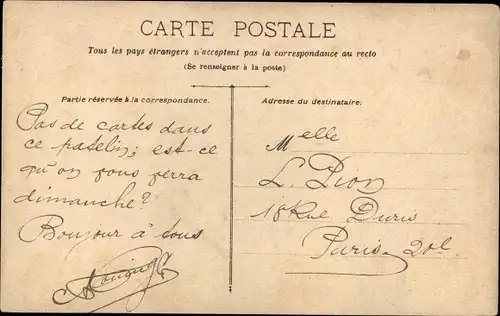 CARTE POSTALE
Tous les pays étrangers n'acceptent pas la correspondance au recto
(Se renseigner à la poste)
Partie réservée à la correspondance.
Adresse du destinataire:
Pas de cartes dans
ce patelin; est-ce
qu'on vous verra
dimanche?
Bonjour à tous
Melle
L. Dion
18 Rue Duris
Paris 20e